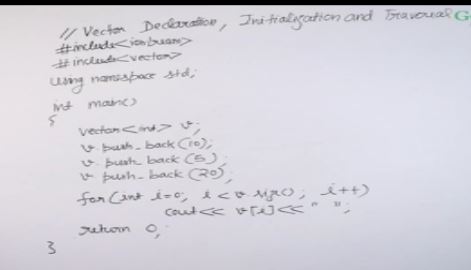 // Vector Declaration, Initialization and Traversal G
#include<iostream>
#include<vector>
using namespace std;
int main()
{
vector<int> v;
v.push_back(10);
v.push_back(5);
v.push_back(20);
for(int i=0; i<v.size(); i++)
cout<< v[i]<<" ";
return 0;
}